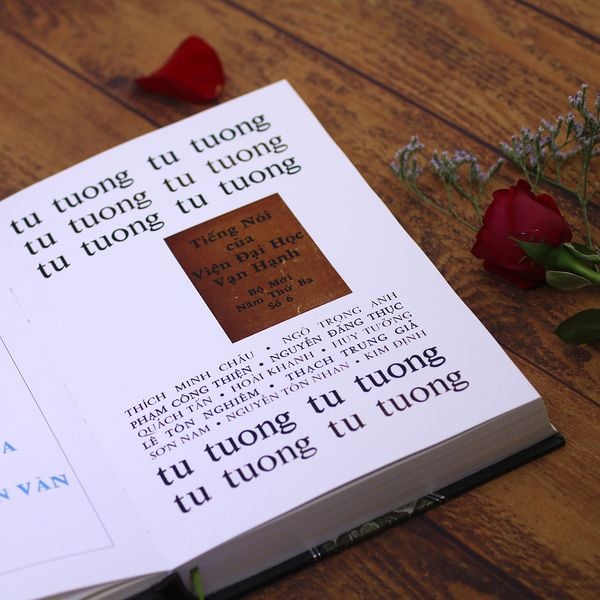 A
N VĂN
tu tuong tu tuong
tu tuong tu tuong
tu tuong tu tuong
Tiếng Nói
của
Viện Đại Học
Vạn Hạnh
Bộ Mới
Năm Thứ Ba
Số 6
THÍCH MINH CHÂU • NGÔ TRỌNG ANH
PHẠM CÔNG THIỆN • NGUYỄN ĐĂNG THỤC
QUÁCH TẤN • HOÀI KHANH • HUY TƯỞNG
LÊ TÔN NGHIÊM • THẠCH TRUNG GIẢ
SƠN NAM • NGUYỄN TÔN NHAN • KIM ĐỊNH
tu tuong tu tuong
tu tuong tu tuong